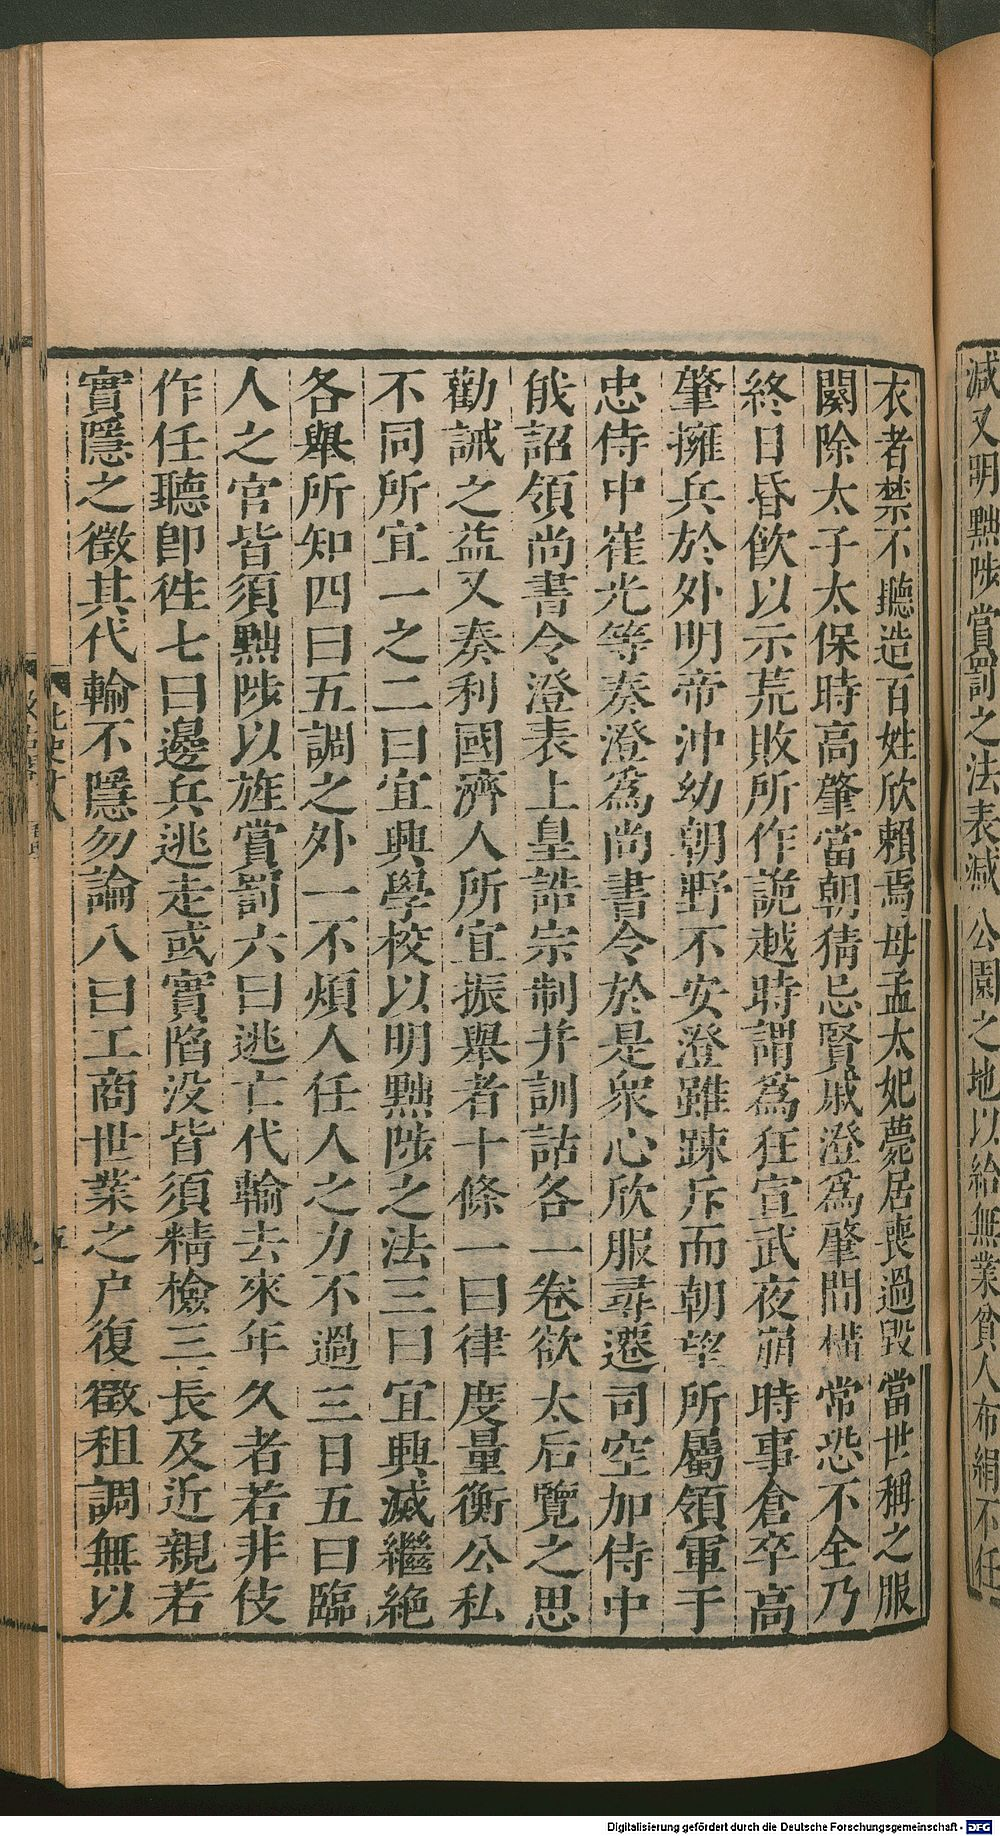 減又明黜陟賞罰之法表減公園之地以給無業貧人布絹不任
衣者禁不聽造百姓欣賴焉母孟太妃薨居喪過毀當世稱之服
闋除太子太保時高肇當朝猜忌賢戚澄爲肇間構常恐不全乃
終日昏飲以示荒敗所作詭越時謂爲狂宣武夜崩時事倉卒高
肇擁兵於外明帝沖幼朝野不安澄雖踈斥而朝望所屬領軍于
忠侍中崔光等奏澄爲尚書令於是衆心欣服尋遷司空加侍中
俄詔領尚書令澄表上皇誥宗制并訓詁各一卷欲太后覽之思
勸誡之益又奏利國濟人所宜振舉者十條一曰律度量衡公私
不同所宜一之二曰宜興學校以明黜陟之法三曰宜興滅繼絶
各舉所知四曰五調之外一不煩人任人之力不過三日五曰臨
人之官皆須黜陟以旌賞罰六曰逃亡代輸去來年久者若非伎
作任聽卽徃七曰邊兵逃走或實陷没皆須精檢三長及近親若
實隱之徵其代輸不隱勿論八曰工商世業之户復徵租調無以
Digitalisierung gefördert durch die Deutsche Forschungsgemeinschaft - DFG